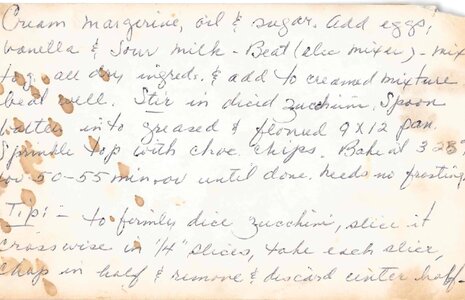 Cream margerine, oil & sugar. Add eggs,
vanilla & Sour milk - Beat (elec mixer) - mix
tog. all dry ingreds. & add to creamed mixture
beat well. Stir in diced zucchini. Spoon
batter into greased & floured 9X12 pan.
Sprinkle top with choc. chips. Bake at 325°
for 50-55 min, or until done. Needs no frosting
Tip: - to firmly dice zucchini, slice it
crosswise in "1/4" slices, take each slice,
chop in half & remove & discard center half -